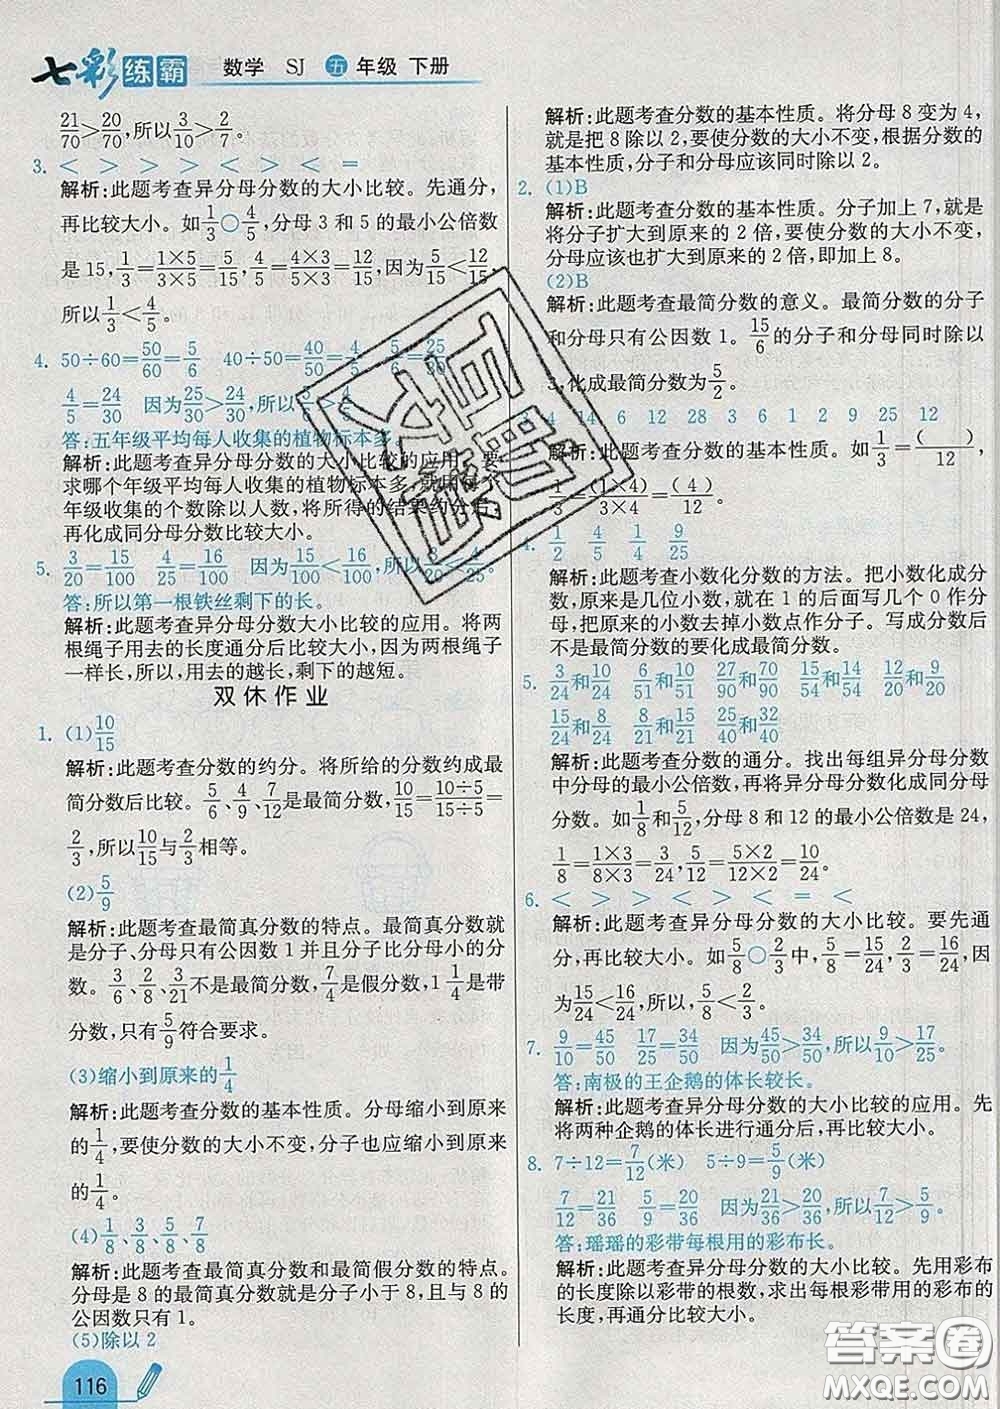 七彩练霸 数学 SJ 五年级 下册
21/70>20/70,所以3/10>2/7。
3. < > > > < > < =
解析:此题考查异分母分数的大小比较。先通分,
再比较大小。如1/3○4/5,分母 3 和 5 的最小公倍数
是 15,1/3=1×5/3×5=5/15,4/5=4×3/5×3=12/15,因为5/15<12/15
所以1/3<4/5。
4. 50÷60=50/60=5/6 40÷50=40/50=4/5 5/6=25/30
4/5=24/30 因为25/30>24/30,所以5/6>4/5
答:五年级平均每人收集的植物标本多。
解析:此题考查异分母分数的大小比较的应用。要
求哪个年级平均每人收集的植物标本多,就用每个
年级收集的个数除以人数,将所得的结果约分后,
再化成同分母分数比较大小。
5. 3/20=15/100 4/25=16/100 因为15/100<16/100 所以3/20<4/25。
答:所以第一根铁丝剩下的长。
解析:此题考查异分母分数大小比较的应用。将两
根绳子用去的长度通分后比较大小,因为两根绳子
一样长,所以,用去的越长,剩下的越短。
双休作业
1. (1)10/15
解析:此题考查分数的约分。将所给的分数约成最
简分数后比较。5/6、4/9、7/12是最简分数,10/15=10÷5/15÷5=
2/3,所以10/15与2/3相等。
(2)5/9
解析:此题考查最简真分数的特点。最简真分数就
是分子、分母只有公因数 1 并且分子比分母小的分
数。3/6、2/8、3/21不是最简分数,7/4是假分数,1 1/4是带
分数,只有5/9符合要求。
(3)缩小到原来的1/4
解析:此题考查分数的基本性质。分母缩小到原来
的1/4,要使分数的大小不变,分子也应缩小到原来
的1/4。
(4)1/8、3/8、5/8、7/8
解析:此题考查最简真分数和最简假分数的特点。
分母是 8 的最简真分数就是分子小于 8,且与 8 的
公因数只有 1。
(5)除以 2
116
解析:此题考查分数的基本性质。将分母 8 变为 4,
就是把 8 除以 2,要使分数的大小不变,根据分数的
基本性质,分子和分母应该同时除以 2。
2. (1)B
解析:此题考查分数的基本性质。分子加上 7,就是
将分子扩大到原来的 2 倍,要使分数的大小不变,
分母应该也扩大到原来的 2 倍,即加上 8。
(2)B
解析:此题考查最简分数的意义。最简分数的分子
和分母只有公因数 1。15/6的分子和分母同时除以
3,化成最简分数为5/2。
3. 4 14 16 12 28 3 6 1 2 9 25 12
解析:此题考查分数的基本性质。如1/3=( )/12,
1/3=(1×4)/3×4=(4)/12。
4. 1/2 4/5 1/4 9/25
解析:此题考查小数化分数的方法。把小数化成分
数,原来是几位小数,就在 1 的后面写几个 0 作分
母,把原来的小数去掉小数点作分子。写成分数后
不是最简分数的要化成最简分数。
5. 3/24和10/24 6/51和10/51 27/90和70/90 15/54和14/54 12/20和9/20
15/24和8/24 8/21和6/21 25/40和32/40
解析:此题考查分数的通分。找出每组异分母分数
中分母的最小公倍数,再将异分母分数化成同分母
分数。如1/8和5/12,分母 8 和 12 的最小公倍数是 24,
1/8=1×3/8×3=3/24,5/12=5×2/12×2=10/24。
6. < > > > < = < <
解析:此题考查异分母分数的大小比较。要先通
分,再比较大小。如5/8○2/3中,5/8=15/24,2/3=16/24,因
为15/24<16/24,所以,5/8<2/3。
7. 9/10=45/50 17/25=34/50 因为45/50>34/50,所以9/10>17/25。
答:南极的王企鹅的体长较长。
解析:此题考查异分母分数的大小比较的应用。先
将两种企鹅的体长进行通分后,再比较大小。
8. 7÷12=7/12(米) 5÷9=5/9(米)
7/12=21/36 5/9=20/36 因为21/36>20/36,所以7/12>5/9。
答:瑶瑶的彩带每根用的彩布长。
解析:此题考查异分母分数的大小比较。先用彩布
的长度除以彩带的根数,求出每根彩带用的彩布的
长度,再通分比较大小。
答案圈
MXQE.COM